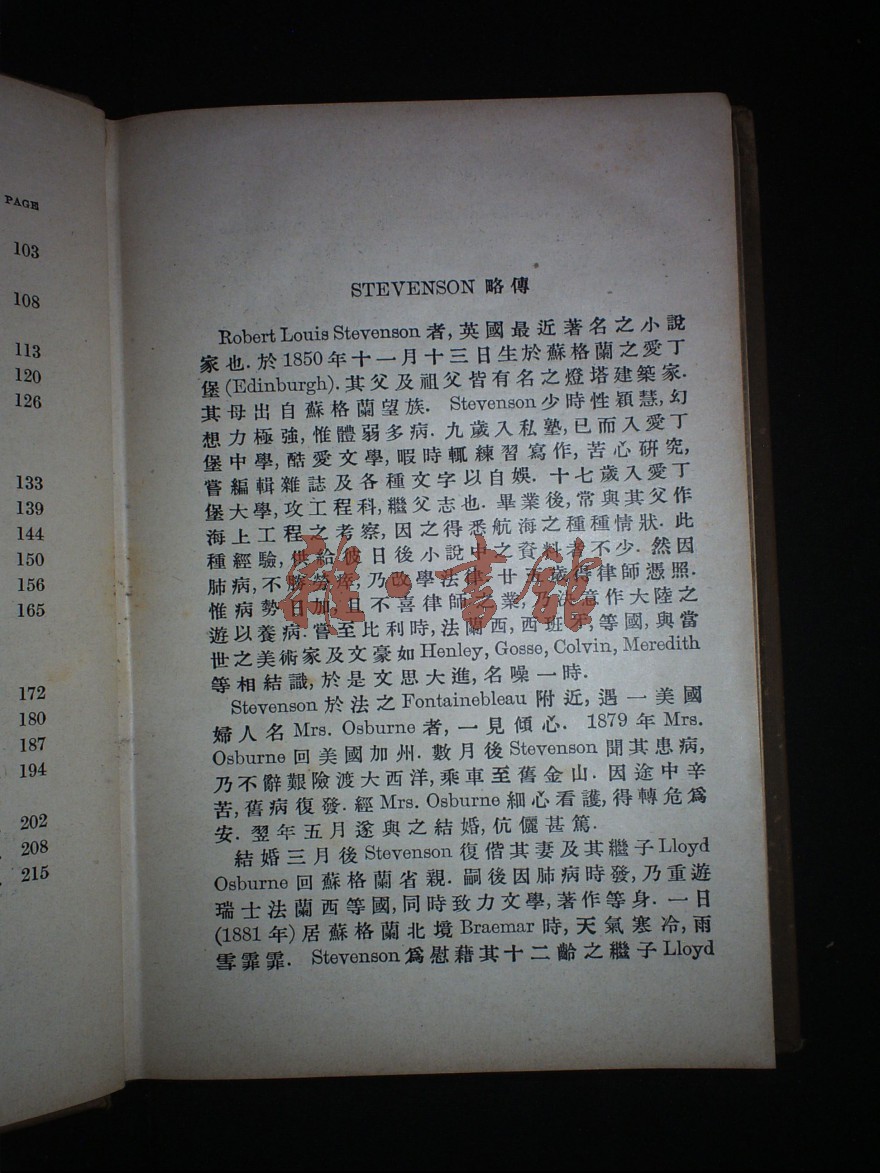 PAGE
103
108
113
120
126
133
139
144
150
156
165
172
180
187
194
202
208
215
STEVENSON 略傳
Robert Louis Stevenson 者, 英國最近著名之小說
家也. 於 1850 年十一月十三日生於蘇格蘭之愛丁
堡 (Edinburgh). 其父及祖父皆有名之燈塔建築家.
其母出自蘇格蘭望族. Stevenson 少時性穎慧, 幻
想力極強, 惟體弱多病. 九歲入私塾, 已而入愛丁
堡中學, 酷愛文學, 暇時輒練習寫作, 苦心研究,
嘗編輯雜誌及各種文字以自娛. 十七歲入愛丁
堡大學, 攻工程科, 繼父志也. 畢業後, 常與其父作
海上工程之考察, 因之得悉航海之種種情狀. 此
種經驗, 供給彼日後小說中之資料者不少. 然因
肺病, 不勝勞瘁, 乃改學法律. 廿五歲得律師憑照.
惟病勢日加, 且不喜律師之業, 乃決意作大陸之
遊以養病. 嘗至比利時, 法蘭西, 西班牙, 等國, 與當
世之美術家及文豪如 Henley, Gosse, Colvin, Meredith
等相結識, 於是文思大進, 名噪一時.
Stevenson 於法之 Fontainebleau 附近, 遇一美國
婦人名 Mrs. Osburne 者, 一見傾心. 1879 年 Mrs.
Osburne 回美國加州. 數月後 Stevenson 聞其患病,
乃不辭艱險渡大西洋, 乘車至舊金山. 因途中辛
苦, 舊病復發. 經 Mrs. Osburne 細心看護, 得轉危爲
安. 翌年五月遂與之結婚, 伉儷甚篤.
結婚三月後 Stevenson 復偕其妻及其繼子 Lloyd
Osburne 回蘇格蘭省親. 嗣後因肺病時發, 乃重遊
瑞士法蘭西等國, 同時致力文學, 著作等身. 一日
(1881 年) 居蘇格蘭北境 Braemar 時, 天氣寒冷, 雨
雪霏霏. Stevenson 爲慰藉其十二齡之繼子 Lloyd
雜·書館